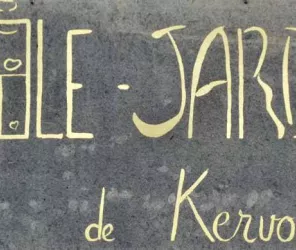 LE-JARD
de Kervo